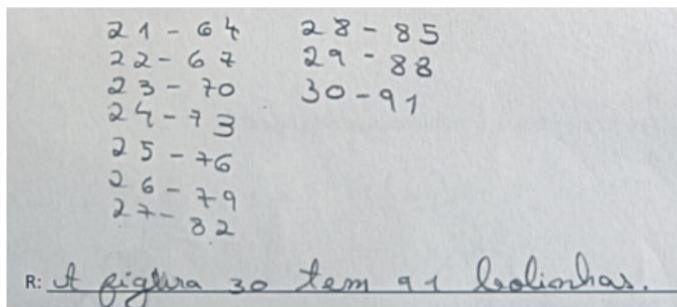 21 - 64
22 - 67
23 - 70
24 - 73
25 - 76
26 - 79
27 - 82
28 - 85
29 - 88
30 - 91
R: A figura 30 tem 91 bolinhas.